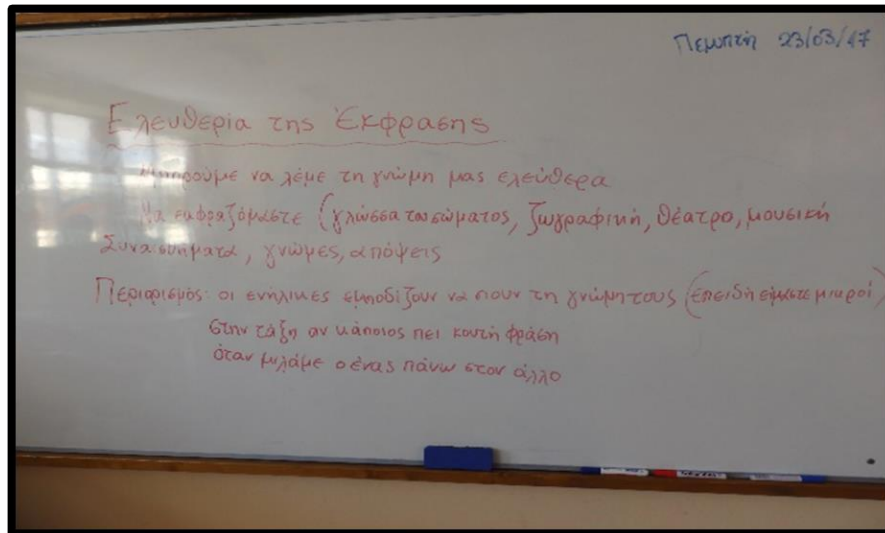 Πεμπτή 23/03/17
Ελευθερία της Έκφρασης
Μπορούμε να λέμε τη γνώμη μας ελεύθερα
Να εκφραζόμαστε (γλώσσα του σώματος, ζωγραφική, θέατρο, μουσική
Συναισθήματα, γνώμες, απόψεις
Περιορισμός: οι ενήλικες εμποδίζουν να πουν τη γνώμη τους (επειδή είμαστε μικροί)
στην τάξη αν κάποιος πει κουτή φράση
όταν μιλάμε ο ένας πάνω στον άλλο